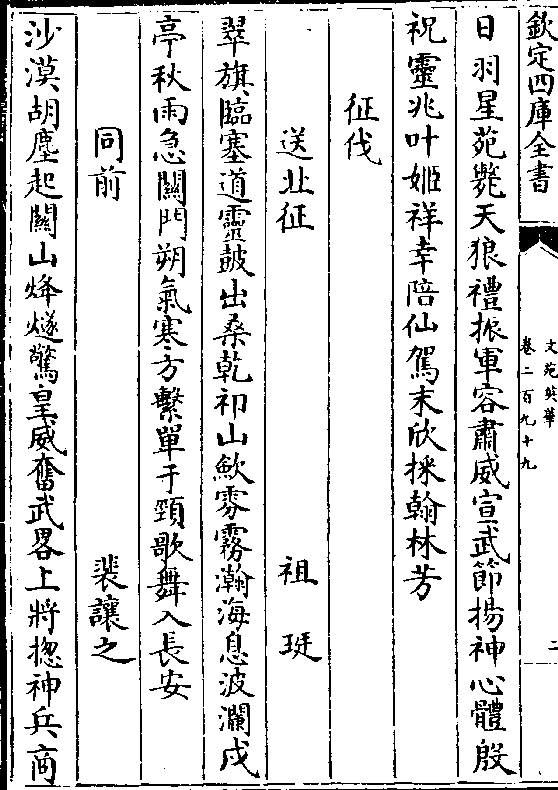 欽定四庫全書
文苑英華
卷二百九十九
二
日羽星苑斃天狼禮振軍容肅威宣武節揚神心體殷
祝靈兆叶姬祥幸陪仙駕末欣採翰林芳
征伐
送北征 祖珽
翠旗臨塞道靈鼓出桑乾祁山歛雰霧瀚海息波瀾戍
亭秋雨急關門朔氣寒方繫單于頸歌舞入長安
同前 裴讓之
沙漠胡塵起關山烽燧驚皇威奮武畧上將揔神兵商